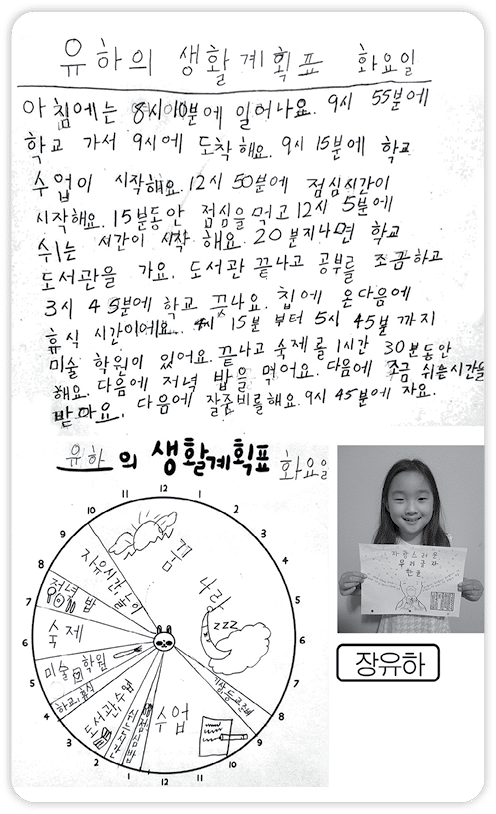 유하의 생활계획표 화요일
아침에는 8시 10분에 일어나요. 9시 55분에
학교 가서 9시에 도착해요. 9시 15분에 학교
수업이 시작해요. 12시 50분에 점심시간이
시작해요. 15분동안 점심을 먹고 12시 5분에
쉬는 시간이 시작 해요. 20분지나면 학교
도서관을 가요. 도서관 끝나고 공부를 조금하고
3시 45분에 학교 끗나요. 칩에 온다음에
휴식 시간이에요. 4시 15분 부터 5시 45불 까지
미술 학원이 있어요. 끝나고 숙제를 1시간 30분동안
해요. 다음에 저녁 밥을 먹어요. 다음에 조금 쉬는시간을
받아요. 다음에 잘준비를해요. 9시 45분에 자요.
유하의 생활계획표 화요일
11 12 1
10 2
9 3
8 4
7 5
6 6
5 7
4 8
3 9
2 10
1 12 11
꿈 나라
zzz
자유시간,
저녁 밥
숙제
미술 학원
하교, 휴식
도서관, 수업
쉬는시간
점심밥
수업
자랑스러운
우리글과
한글
장유하